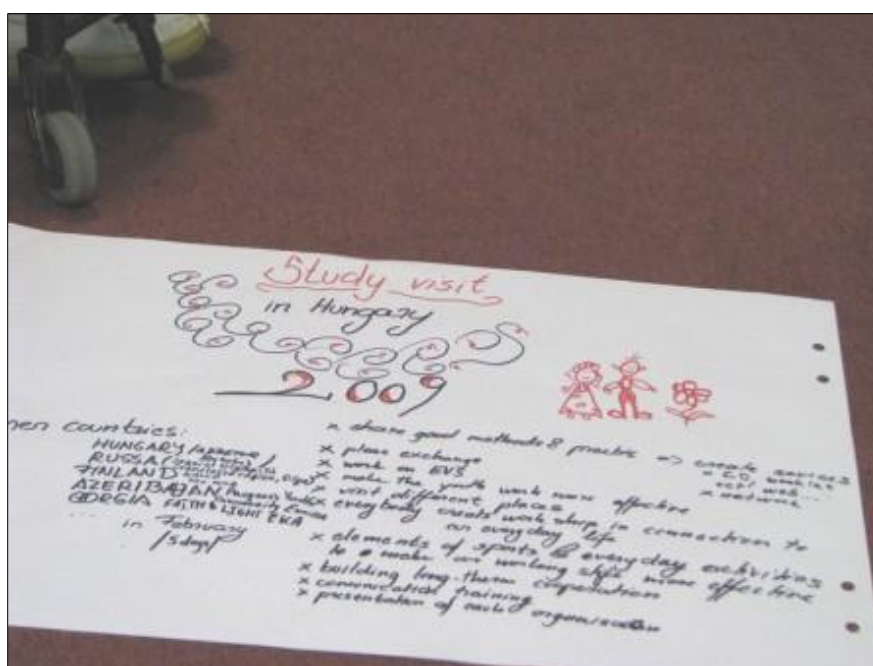 Study visit
in Hungary
2009
countries:
HUNGARY
RUSSIA
FINLAND
AZERIBAJAN
GORGIA FAITH & LIGHT EKA
... in February
/5 days/
x share good methods & practis => create
x plane exchange
x work on EVS
x make the youth work more effective
x visit different places
x everybody creats work shop in connection to
an everyday life
x elements of sports & everyday
to make our working stift more effective
x building long-therm cooperation
x comunication training
x presentation of each organisation
x CD,
web...
x net work